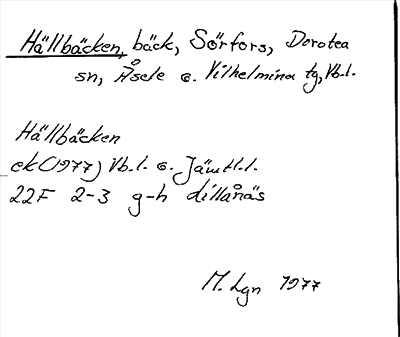 Hällbäcken, bäck, Sörfors, Dorotea
sn, Åsele o. Vilhelmina tg, Vb.l.
Hällbäcken
ek (1977) Vb.l. o. Jämtl.l.
22F 2-3 g-h dillånäs
M. Lgn 1977